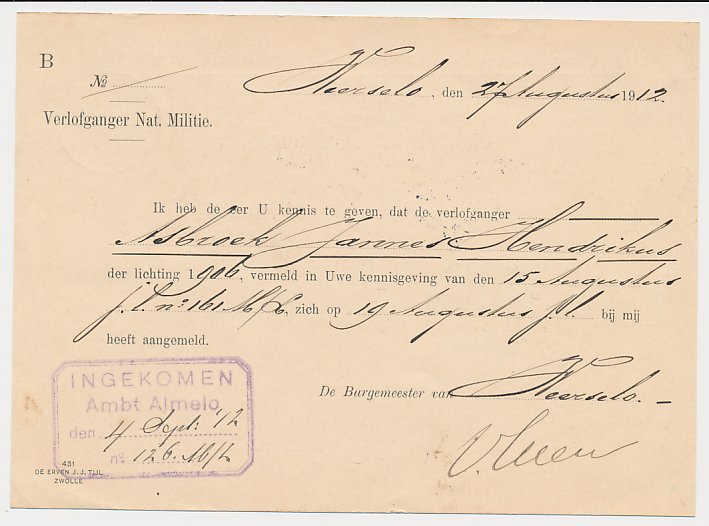 B
№
Weerselo, den 27 Augustus 1912.
Verlofganger Nat. Militie.
Ik heb de eer U kennis te geven, dat de verlofganger
Asbroek Jannes Hendrikus
der lichting 1906, vermeld in Uwe kennisgeving van den 15 Augustus
j.l. no 161 M/C, zich op 19 Augustus j.l. bij mij
heeft aangemeld.
De Burgemeester van Weerselo.
INGEKOMEN
Ambt Almelo
den 4 Sept: '12
no 126.
431
DE ERVEN J. J. TIJL
ZWOLLE